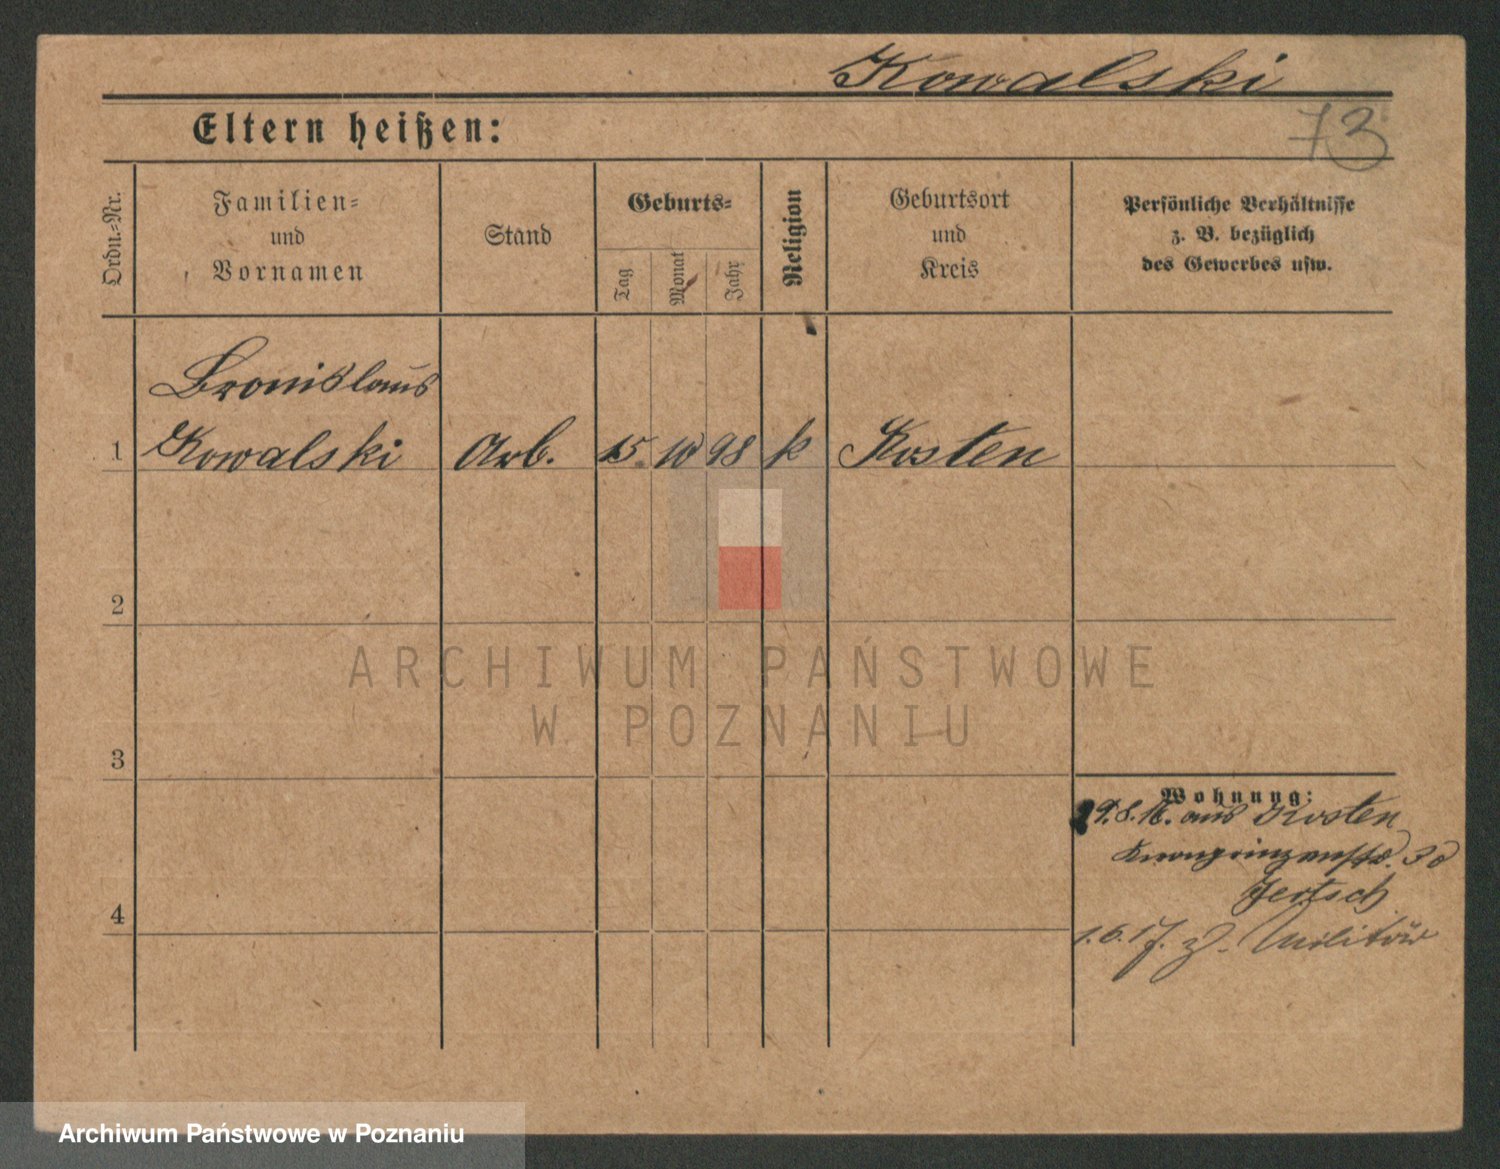 Kowalski
73
Eltern heißen:
Ordn.-Nr.
Familien-
und
Vornamen
Stand
Geburts-
Tag
Monat
Jahr
Religion
Geburtsort
und
Kreis
Persönliche Verhältnisse
z. B. bezüglich
des Gewerbes usw.
Bronislaus
1 Kowalski Arb. 15. 10 98 k Kosten
2
ARCHIWUM PAŃSTWOWE
W POZNANIU
3
Wohnung:
9.8.16. aus Kosten
Kronprinzenstr. 30
Jertsch
4
1.6.17. z. Militär
Archiwum Państwowe w Poznaniu